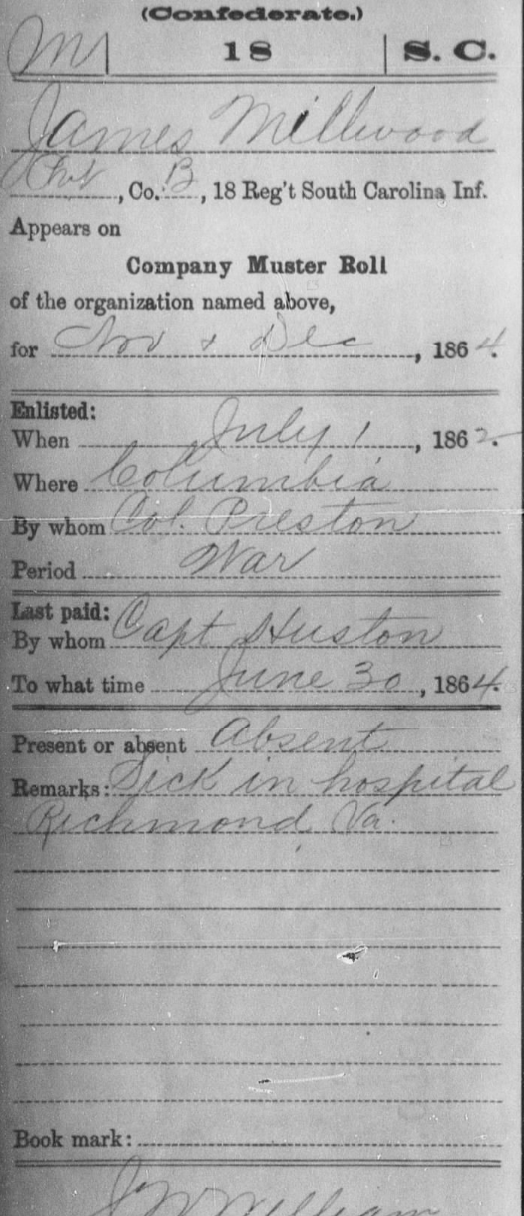 (Confederate.)
M | 18 | S. C.
James Millwood
Pvt, Co. B, 18 Reg't South Carolina Inf.
Appears on
Company Muster Roll
of the organization named above,
for Nov & Dec, 1864.
Enlisted:
When July 1, 1862.
Where Columbia
By whom Col. Preston
Period War
Last paid:
By whom Capt Huston
To what time June 30, 1864.
Present or absent Absent
Remarks: Sick in hospital
Richmond, Va.
Book mark:
J W William